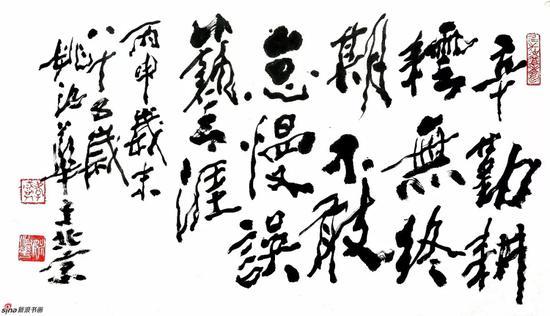 辛勤耕
耘無終
期不敢
怠慢誤
藝涯
丙申歲末
八十五歲
姚治華于北京
sina新浪书画